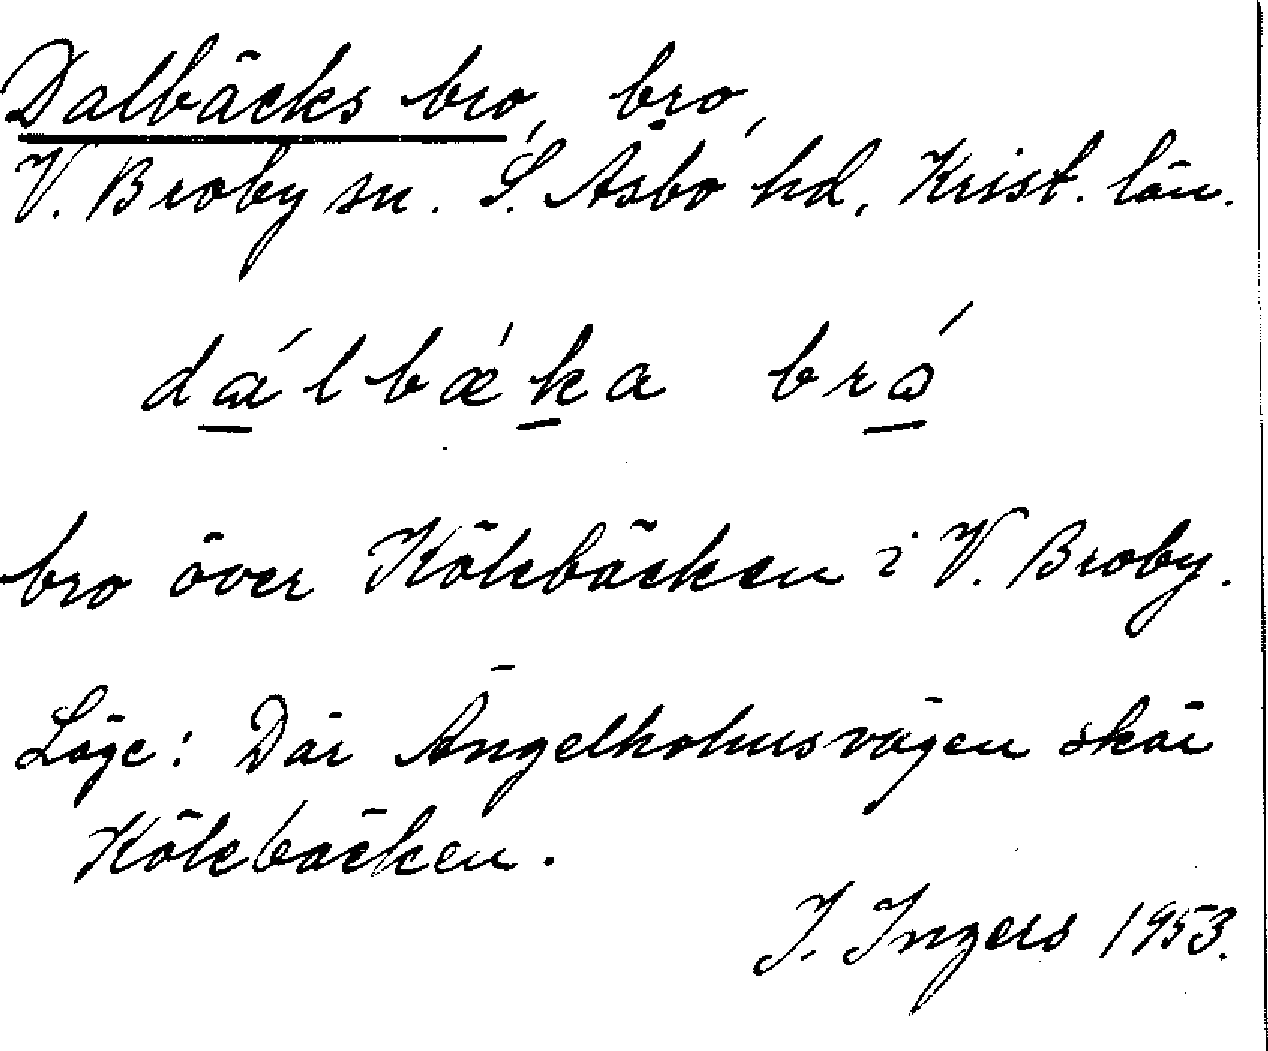 Dalbäcks bro, bro,
V. Broby sn. S. Åsbo hd, Krist. län.
dálbæ´ka brå´
bro över Kölebäcken i V. Broby.
Läge: Där Ängelholmsvägen skär
Kölebäcken.
I. Ingers 1953.